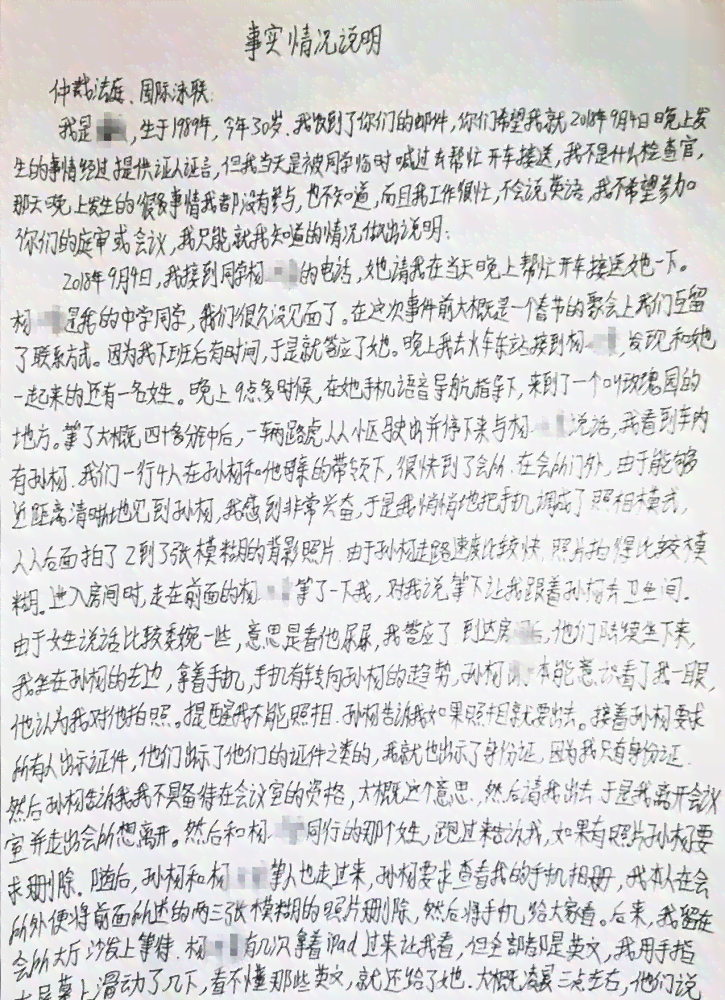 事实情况说明
仲裁法庭、国际泳联:
我是，生于1989年，今年30岁，我收到了你们的邮件，你们希望我就2018年9月4日晚上发
生的事情经过提供证人证言，但我当天是被同学临时喊过去帮忙开车接送，我不是什么检查官，
那天晚上发生的很多事情我都没有参与，也不知道，而且我工作很忙，不会说英语，我不希望参加
你们的庭审或会议，我只能就我知道的情况做出说明：
2018年9月4日，我接到同学杨的电话，她请我在当天晚上帮忙开车接送她一下。
杨是我的中学同学，我们很久没见面了。在这次事件前大概是一个春节的聚会上我们互留
了联系方式。因为我下班后有时间，于是就答应了她。晚上我去火车东站接到杨，发现和她
一起来的还有一名女生。晚上9点多时候，在她手机语音导航指导下，来到了一个叫玫瑰园的
地方。等了大概四十多分钟后，一辆路虎从小区驶出并停下来与杨说话，我看到车内
有孙杨。我们一行4人在孙杨和他母亲的带领下，很快到了会所。在会所门外，由于能够
近距离清晰地见到孙杨，我感到非常兴奋，于是我悄悄地把手机调成了照相模式，
从后面拍了2到了3张模糊的背影照片。由于孙杨走路速度比较快，照片拍得比较模
糊。进入房间时，走在前面的杨等了一下我，对我说等下让我跟着孙杨去卫生间。
由于女生说话比较委婉一些，意思是看他尿尿，我答应了。到达房后，他们陆续坐下来，
我坐在孙杨的左边，拿着手机，手机有转向孙杨的趋势，孙杨本能意识看了我一眼，
他认为我对他拍照。提醒我不能照相。孙杨告诉我如果照相就要出去。接着孙杨要求
所有人出示证件，他们出示了他们的证件之类的，我就也出示了身份证，因为我只有身份证。
然后孙杨告诉我我不具备待在会议室的资格，大概这个意思，然后请我出去。于是我离开会议
室并走出会所想离开。然后和杨同行的那个女生，跑过来告诉我，如果有照片孙杨要
求删除。随后，孙杨和杨等人也走过来，孙杨要求查看我的手机相册，我本人在会
所外便将前面所述的两三张模糊的照片删除，然后将手机给大家看。后来，我留在
会所大厅沙发上等待。杨有几次拿着iPad过来让我看，但全部都是英文，我用手指
在屏幕上滑动了几下，看不懂那些英文，就还给了她。大概凌晨三点左右，他们说